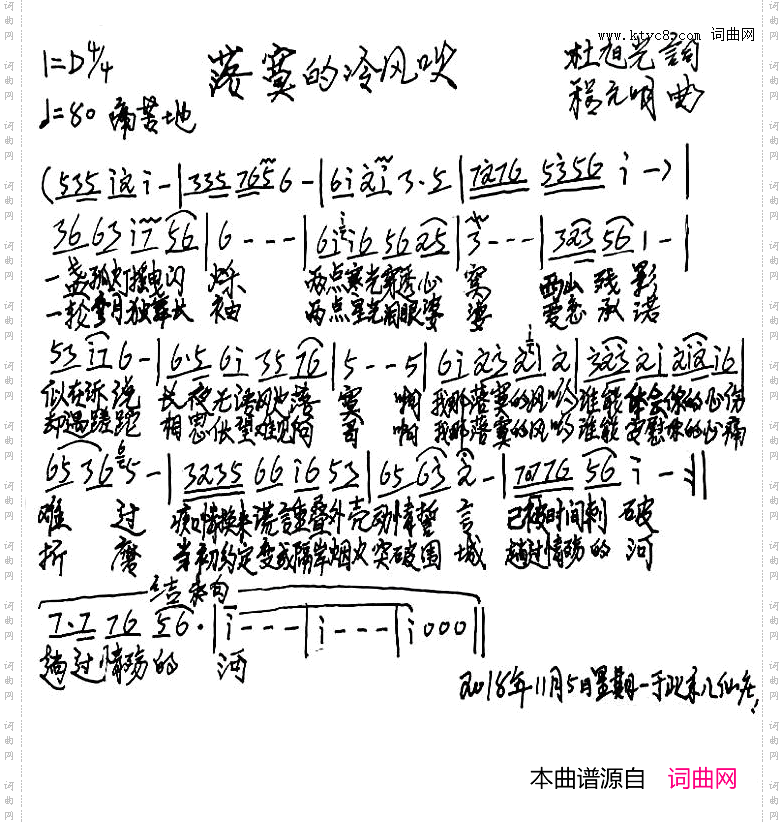 www.ktvc8.com 词曲网
1=D 4/4 落寞的冷风吹 杜旭光 詞
♩=80 痛苦地 程元明 曲
(535 i2i i - | 335 7656 6 - | 6i 2i 3·5 | 7276 5356 i -) |
36 63 i7 56 | 6 - - - | 6i i6 56 25 | 3 - - - | 323 56 1 - |
一盏孤灯摇曳闪烁 两点寒光穿透心窝 西山残影
一轮弯月独舞长袖 两点星光洞眼婆娑 爱恋承诺
53 i7 6 - | 6·5 6i 35 76 | 5 - - 5 | 6i 23 2i 2 | 323 2i 2i2 i6 |
似在诉说 长夜无语风吹落寞 啊 我那落寞的风哟谁能体会你的心伤
却遇蹉跎 相思伙望难见阿哥 啊 我那落寞的风哟谁能安慰你的心痛
65 36 5 - | 3235 66 i6 53 | 65 63 2 - | 7276 56 i - :||
难过 痴情换来谎言重叠外壳 动情誓言 已被时间刺破
折磨 当初约定变成隔岸烟火 突破围城 趟过情殇的河
结束句
7·7 76 56· | i - - - | i - - - | i 0 0 0 ||
趟过情殇的河
2018年11月5日星期一于北京八仙庄
本曲谱源自 词曲网
词曲网